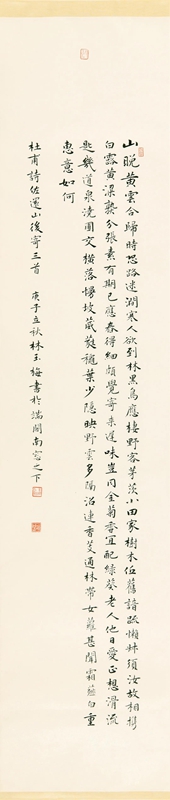 山晚黃雲合歸時恐路迷澗寒人欲到林黑鳥應棲野客茅茨小田家樹木低舊諳疏懶叔須汝故相攜
白露黃粱熟分張素有期已應舂得細頗覺寄來遲味豈同金菊香宜配綠葵老人他日愛正想滑流
匙幾道泉澆圃交橫落慢坡葳蕤穐葉少隱映野雲多隔沼連香芰通林帶女蘿甚聞霜薤白重
惠意如何
杜甫詩佐還山後寄三首 庚子立秋林玉梅書於閣南窗之下